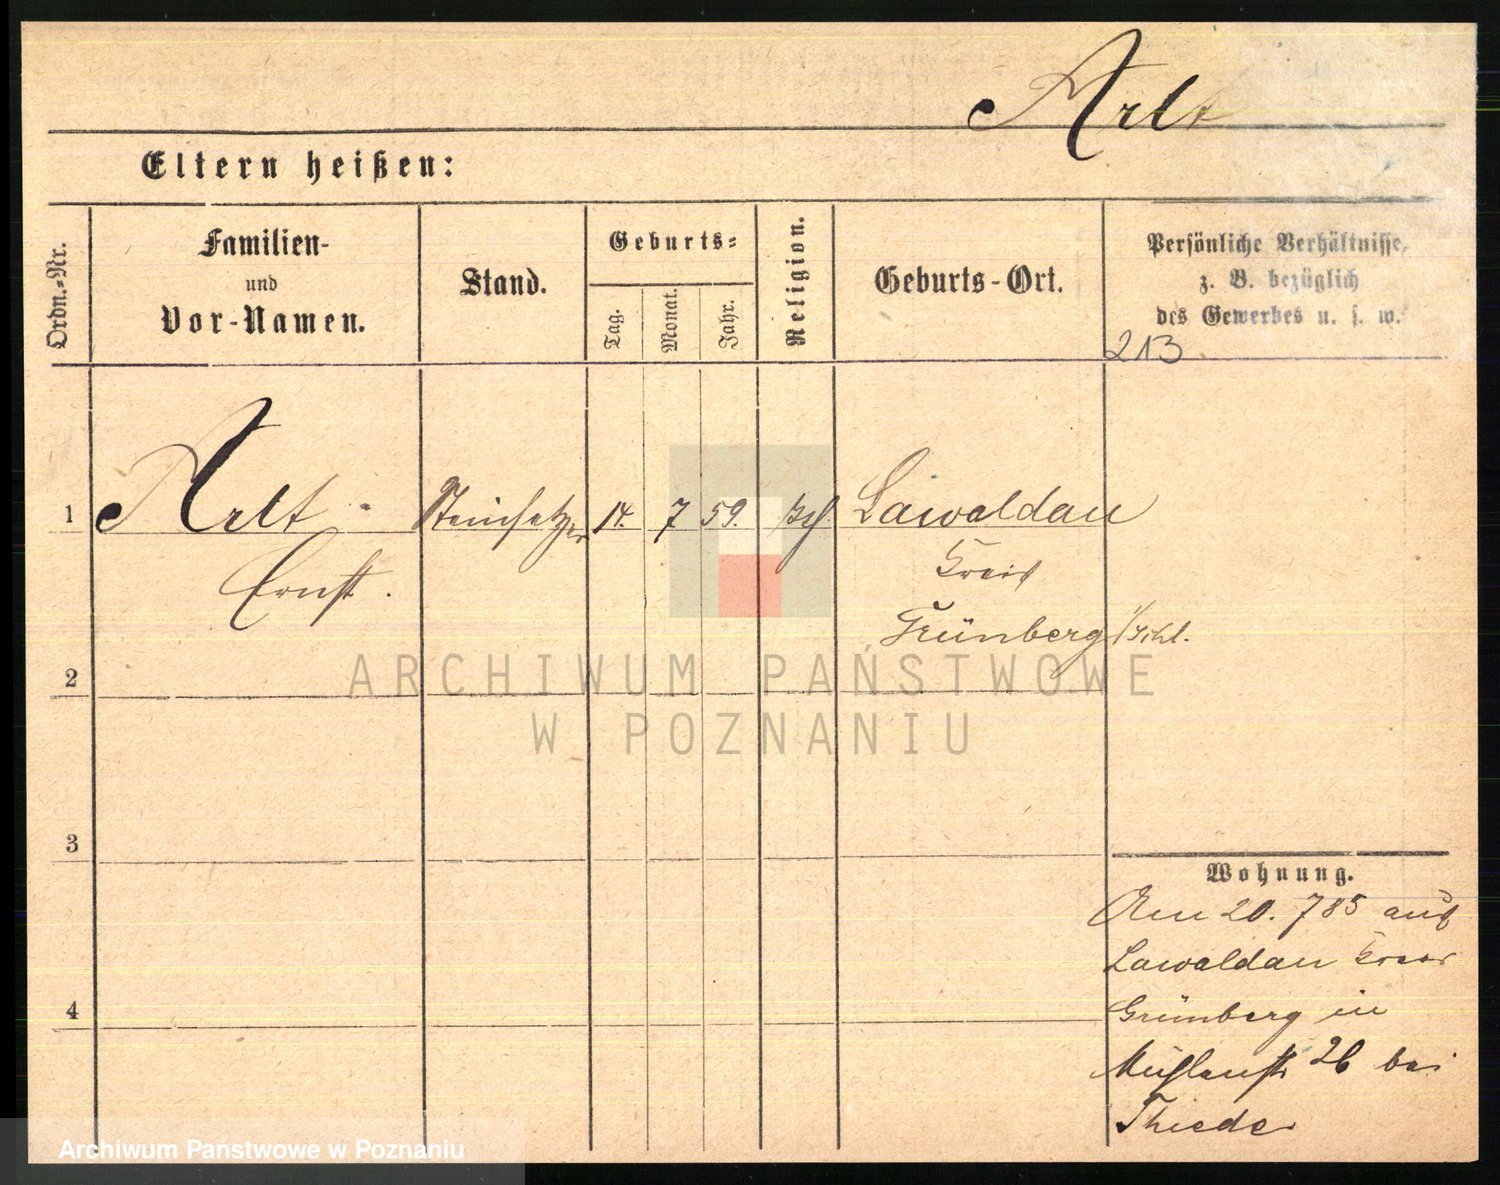 Arlt
Eltern heißen:
Ordn.-Nr.
Familien-
und
Vor-Namen.
Stand.
Geburts-
Tag.
Monat.
Jahr.
Religion.
Geburts-Ort.
Persönliche Verhältnisse,
z. B. bezüglich
des Gewerbes u. s. w.
213
1 Arlt Steinsetzer 14. 7 59. Lawaldau
Ernst.
Kreis
Grünberg i/Schl.
2
3
4
Wohnung.
Am 20. 785 aus
Lawaldau Kreis
Grünberg in
Mühlenstr 26 bei
Thieder
ARCHIWUM PAŃSTWOWE
W POZNANIU
Archiwum Państwowe w Poznaniu